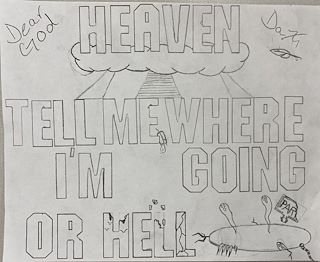 Dear
God
HEAVEN
TELL ME WHERE
I'M GOING
OR HELL